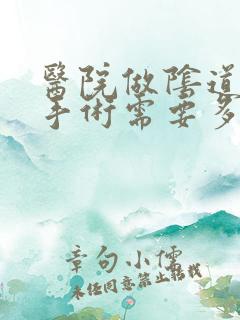 醫院做陰道
手術需要多
章句小儒
未经同意禁止转载